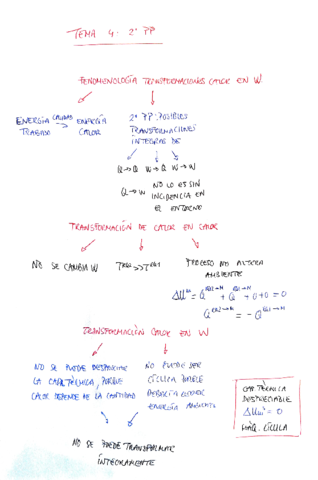 TEMA 4. 2º PP
FENOMENOLOGÍA TRANSFORMACIONES CALOR EN W
ENERGÍA CAUSAS → ENERGÍA
TRABAJO CALOR
2º PP: POSIBLES
TRANSFORMACIONES
ÍNTEGRAS DE
Q→Q W→Q W→W
Q→W NO LO ES SIN
INCIDENCIA EN
EL ENTORNO
TRANSFORMACIÓN DE CALOR EN CALOR
NO SE CAMBIA W
PROCESO NO ALTERA
AMBIENTE
TRANSFORMACIÓN CALOR EN W
NO SE PUEDE DESPRECIAR
LA CAP. TÉRMICA, PORQUE
CALOR DEPENDE DE LA CANTIDAD
NO PUEDE SER
CÍCLICA PORQUE
DEBERÍA
ENERGÍA AMBIENTE
CAP TÉRMICA
DESPRECIABLE
= 0
MÁQ. CÍCLICA
NO SE PUEDE TRANSFORMAR
ÍNTEGRAMENTE